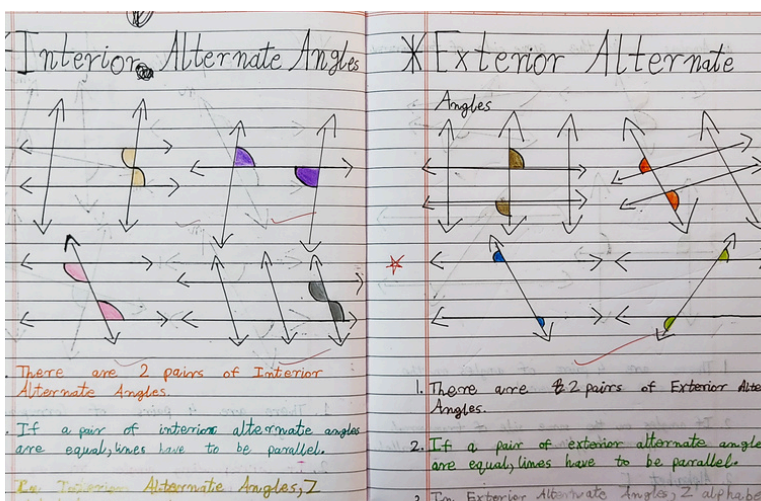 Interior Alternate Angles
There are 2 pairs of Interior
Alternate Angles.
If a pair of interior alternate angles
are equal, lines have to be parallel.
Interior Alternate Angles, Z
* Exterior Alternate
Angles
1. There are 2 pairs of Exterior Alte
Angles.
2. If a pair of exterior alternate angle
are equal, lines have to be parallel.
3 In Exterior Alternate Angles, Z alphabe